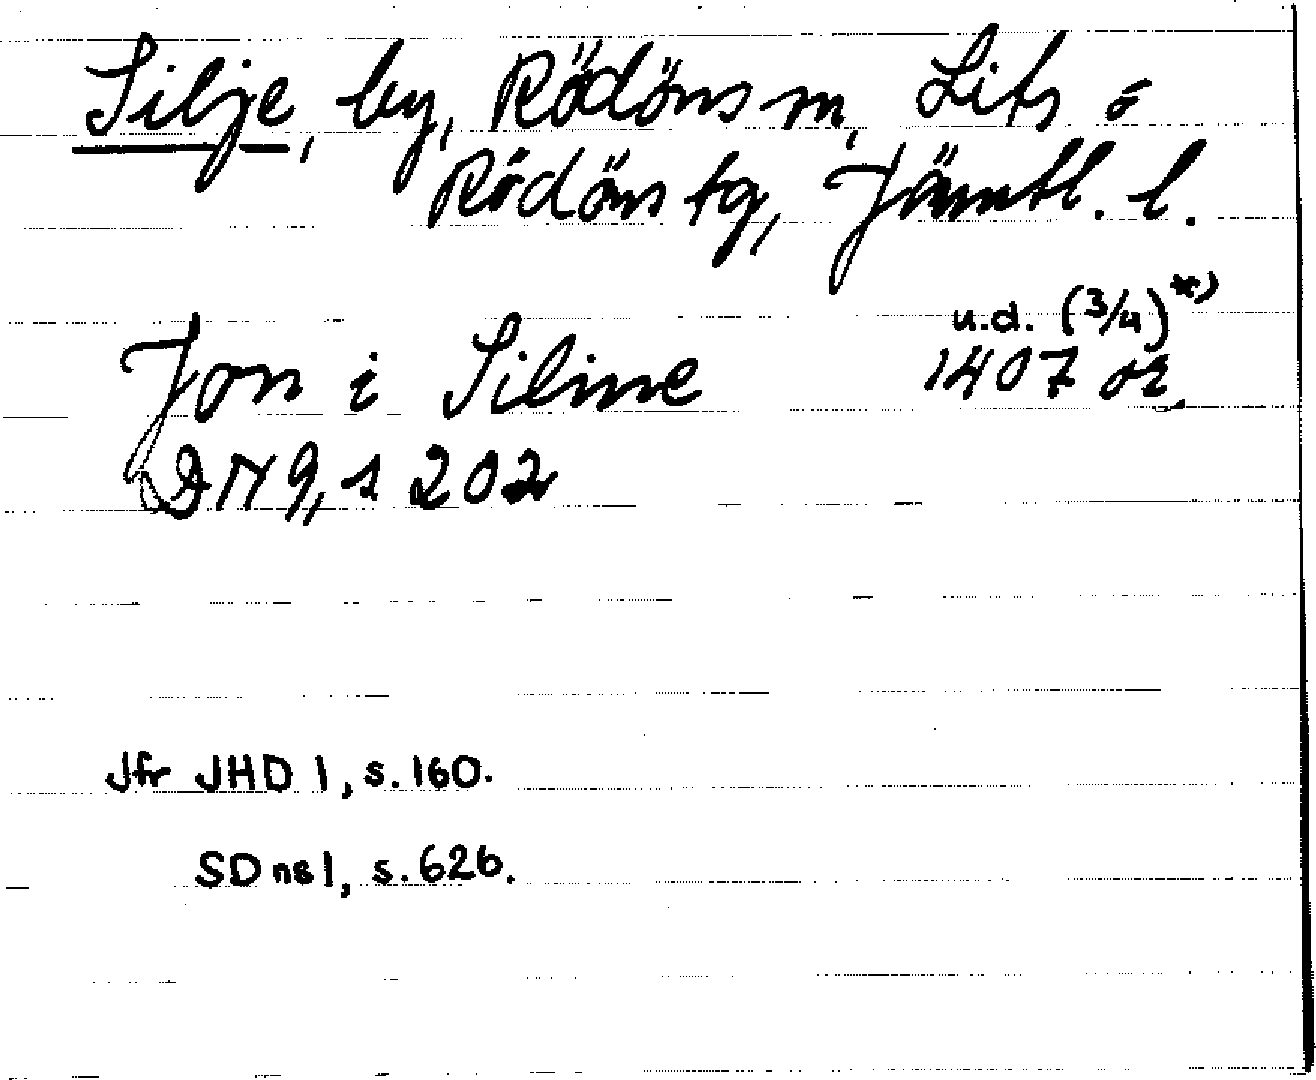 Silje, by, Rödöns sn, Lits o
Rödöns tg, Jämtl. l.
u.d. (3/4)*)
Jon i Siline 1407 or.
DN 9, s 202
Jfr JHD 1, s. 160.
SDns1, s. 626.